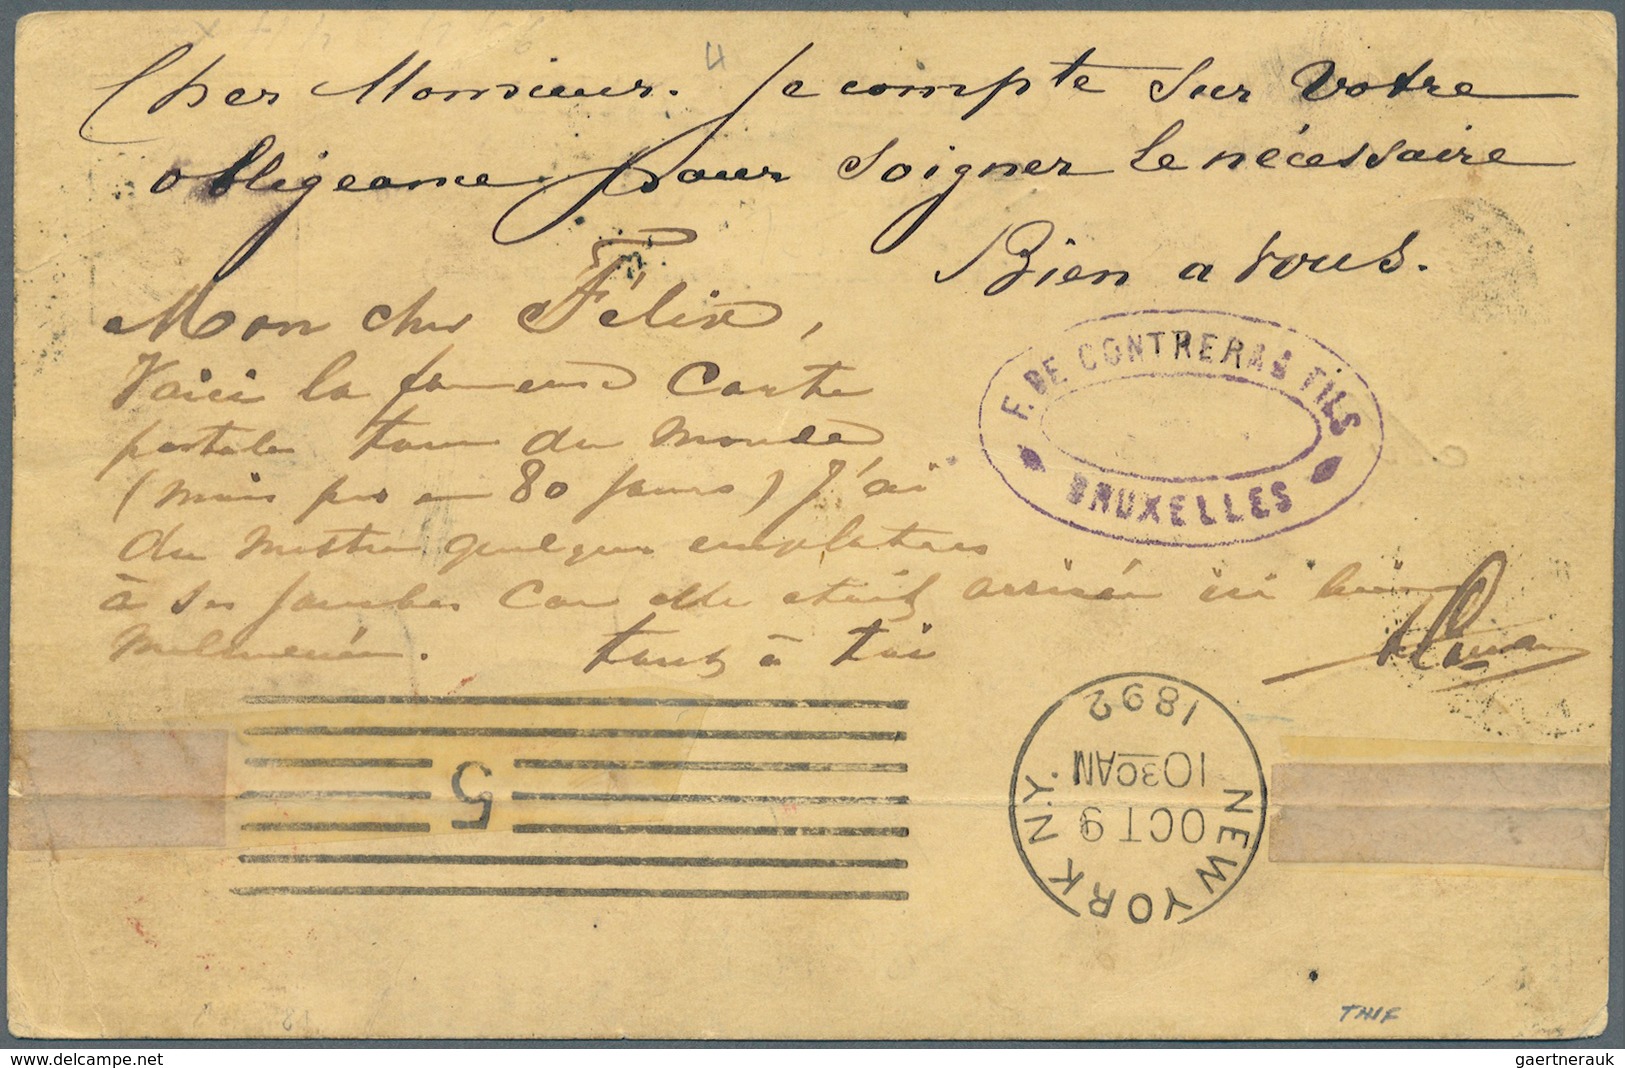 4
Cher Monsieur. Je compte sur votre
obligeance pour soigner le nécessaire
Bien a vous.
Mon cher Félix,
Voici la fameuse Carte
postale tour du Monde
(mais pas en 80 jours) J'ai
du mettre quelques emplatres
à ses jambes Car elle etait arrivée ici bien
malmenée. tout à toi
F. DE CONTRERAS FILS
BRUXELLES
5
NEW YORK N.Y.
OCT 9
1030AM
1892
THIF
delcampe.net
gaertnerauk